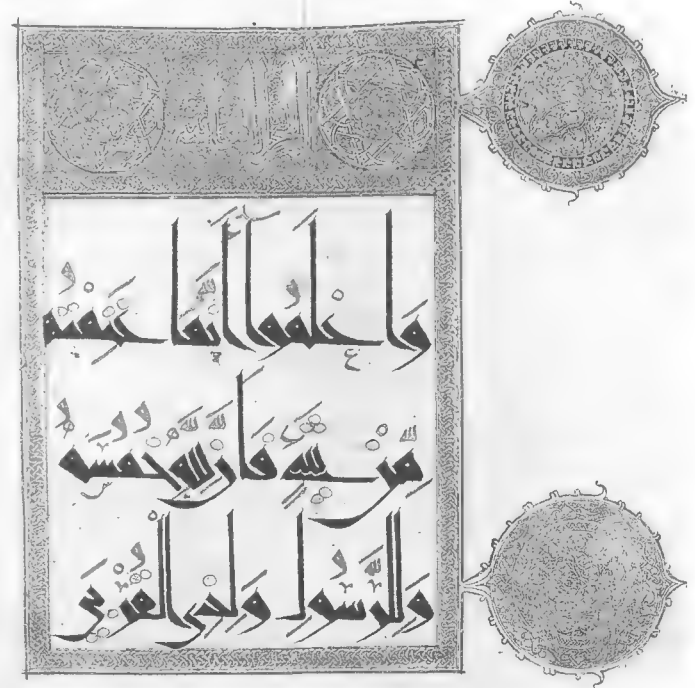 وَاعْلَمُوا أَنَّمَا غَنِمْتُمْ
مِّن شَيْءٍ فَأَنَّ لِلَّهِ خُمُسَهُ
وَلِلرَّسُولِ وَلِذِي الْقُرْبَى